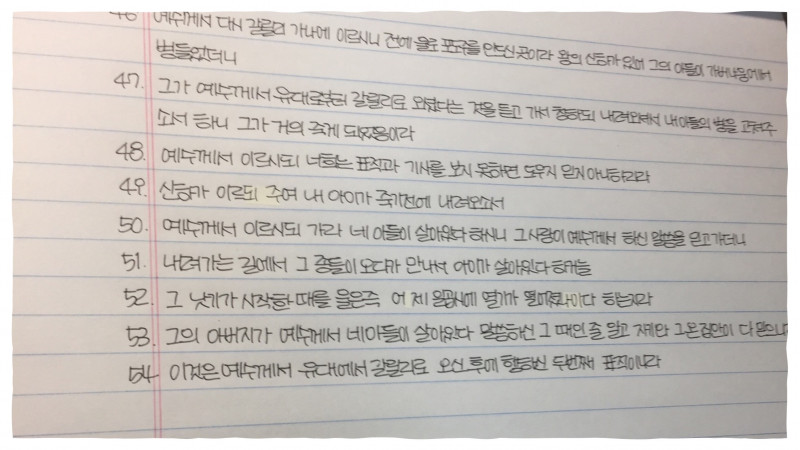 46 예수께서 다시 갈릴리 가나에 이르시니 전에 물로 포도주를 만드신 곳이라 왕의 신하가 있어 그의 아들이 가버나움에서
병들었더니
47. 그가 예수께서 유대로부터 갈릴리로 오셨다는 것을 듣고 가서 청하되 내려오셔서 내 아들의 병을 고쳐주
소서 하니 그가 거의 죽게 되었음이라
48. 예수께서 이르시되 너희는 표적과 기사를 보지 못하면 도무지 믿지 아니하리라
49. 신하가 이르되 주여 내 아이가 죽기전에 내려오소서
50. 예수께서 이르시되 가라 네 아들이 살아있다 하시니 그 사람이 예수께서 하신 말씀을 믿고 가더니
51. 내려가는 길에서 그 종들이 오다가 만나서 아이가 살아있다 하거늘
52. 그 낫기가 시작한 때를 물은즉 어제 일곱시에 열기가 떨어졌나이다 하는지라
53. 그의 아버지가 예수께서 네 아들이 살아있다 말씀하신 그 때인 줄 알고 자기와 그 온 집안이 다 믿으니
54 이것은 예수께서 유대에서 갈릴리로 오신 후에 행하신 두번째 표적이니라